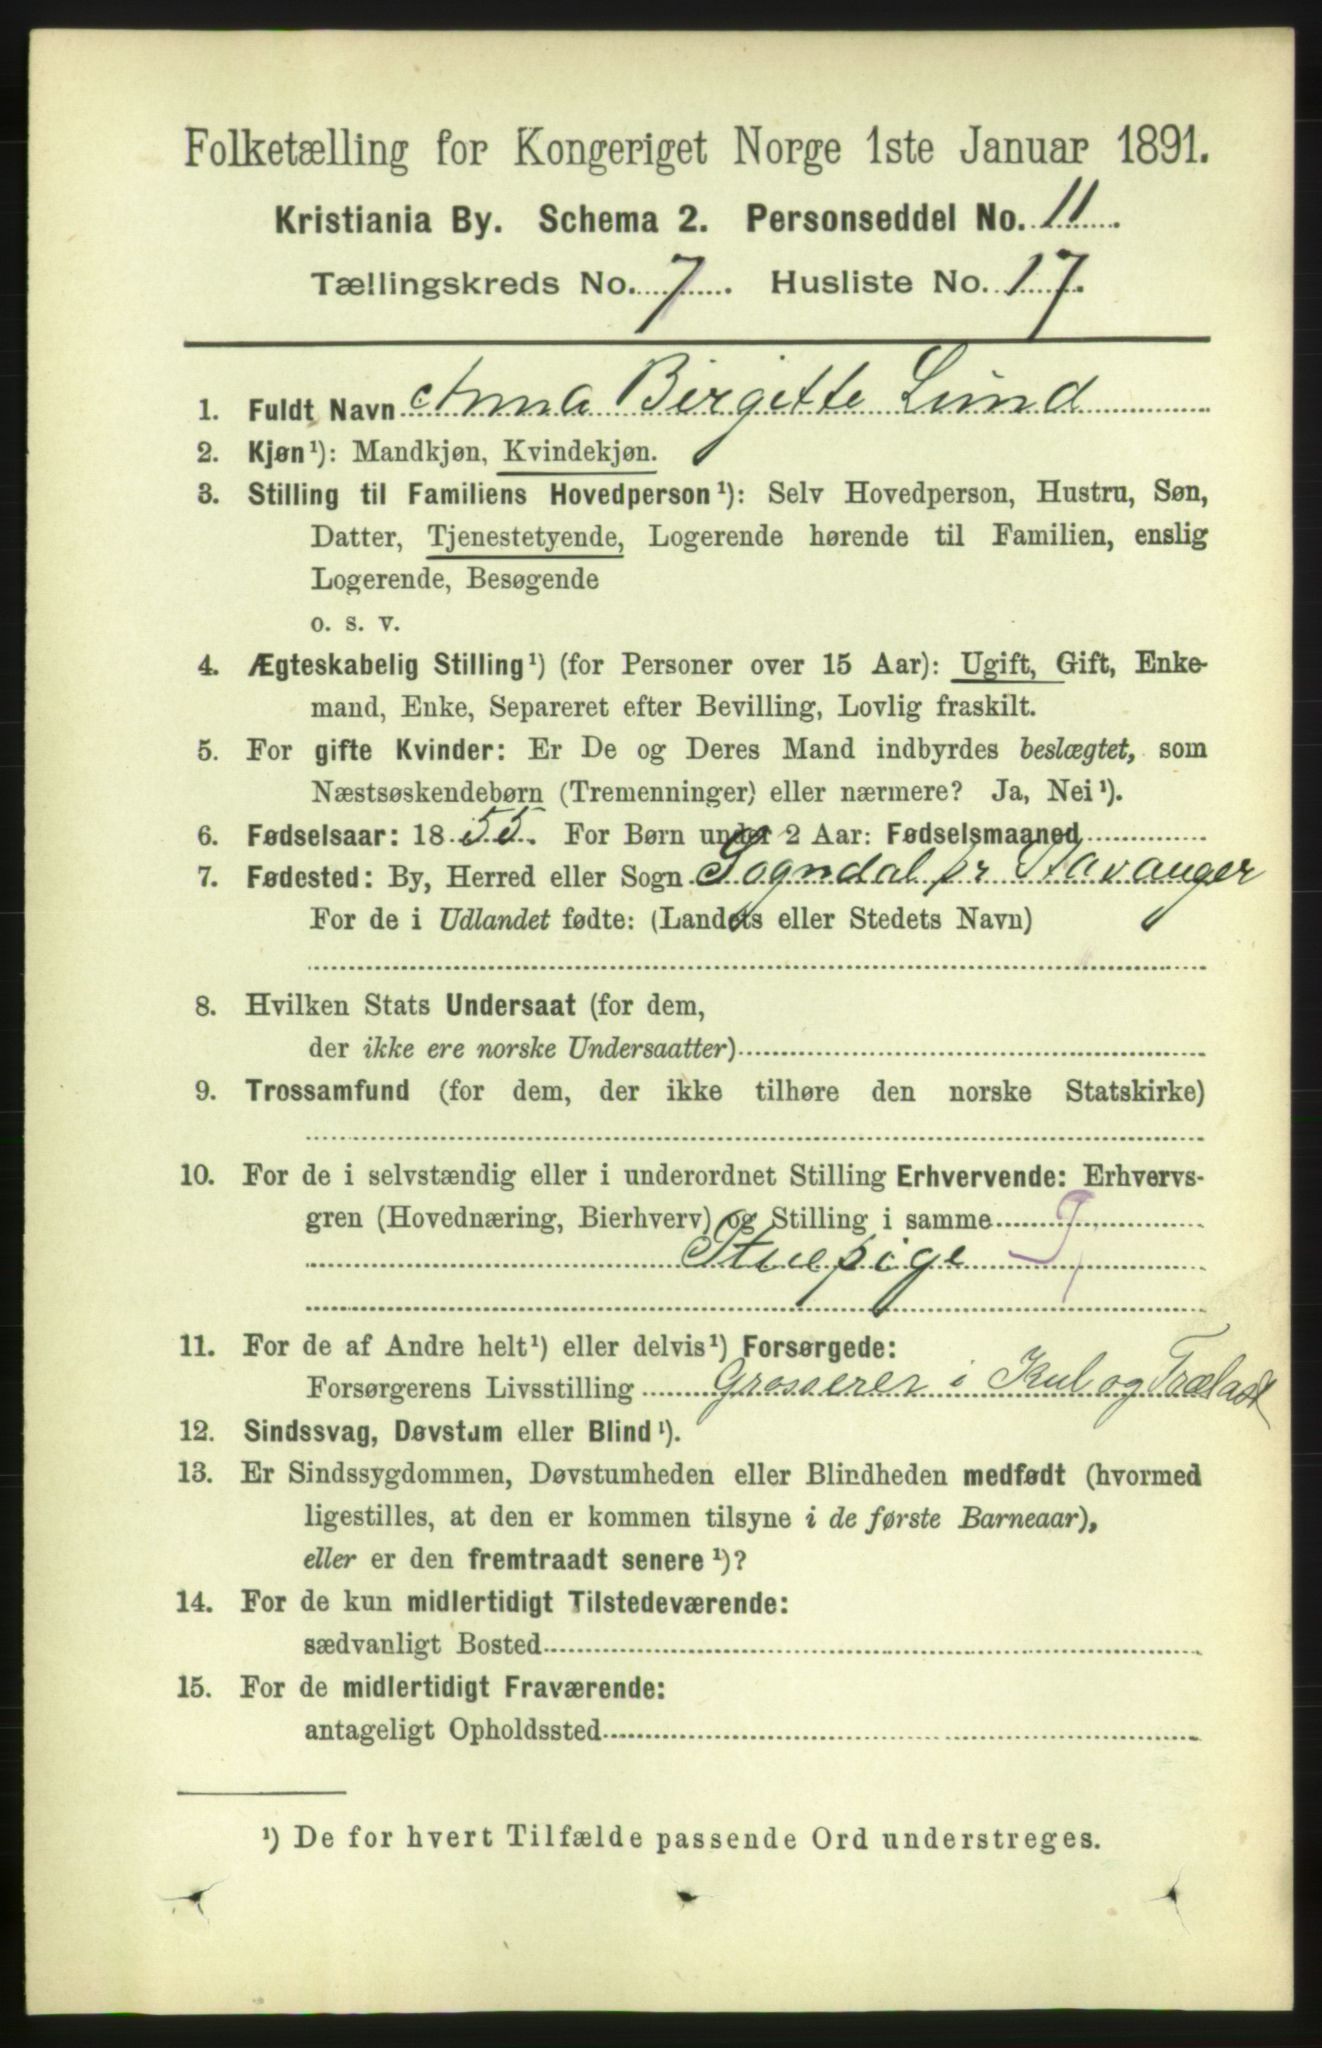 Folketælling for Kongeriget Norge 1ste Januar 1891.
Kristiania By. Schema 2. Personseddel No. 11
Tællingskreds No. 7. Husliste No. 17.
1. Fuldt Navn Anna Birgitte Lund
2. Kjøn¹): Mandkjøn, Kvindekjøn.
3. Stilling til Familiens Hovedperson¹): Selv Hovedperson, Hustru, Søn,
Datter, Tjenestetyende, Logerende hørende til Familien, enslig
Logerende, Besøgende
o. s. v.
4. Ægteskabelig Stilling¹) (for Personer over 15 Aar): Ugift, Gift, Enke-
mand, Enke, Separeret efter Bevilling, Lovlig fraskilt.
5. For gifte Kvinder: Er De og Deres Mand indbyrdes beslægtet, som
Næstsøskendebørn (Tremenninger) eller nærmere? Ja, Nei¹).
6. Fødselsaar: 1855. For Børn under 2 Aar: Fødselsmaaned
7. Fødested: By, Herred eller Sogn Sogndal pr Stavanger
For de i Udlandet fødte: (Landets eller Stedets Navn)
8. Hvilken Stats Undersaat (for dem,
der ikke ere norske Undersaatter)
9. Trossamfund (for dem, der ikke tilhøre den norske Statskirke)
10. For de i selvstændig eller i underordnet Stilling Erhvervende: Erhvervs-
gren (Hovednæring, Bierhverv) og Stilling i samme
Stuepige
11. For de af Andre helt¹) eller delvis¹) Forsørgede:
Forsørgerens Livsstilling Grosserer i Kul og Trælast
12. Sindssvag, Døvstum eller Blind¹).
13. Er Sindssygdommen, Døvstumheden eller Blindheden medfødt (hvormed
ligestilles, at den er kommen tilsyne i de første Barneaar),
eller er den fremtraadt senere¹)?
14. For de kun midlertidigt Tilstedeværende:
sædvanligt Bosted
15. For de midlertidigt Fraværende:
antageligt Opholdssted
¹) De for hvert Tilfælde passende Ord understreges.